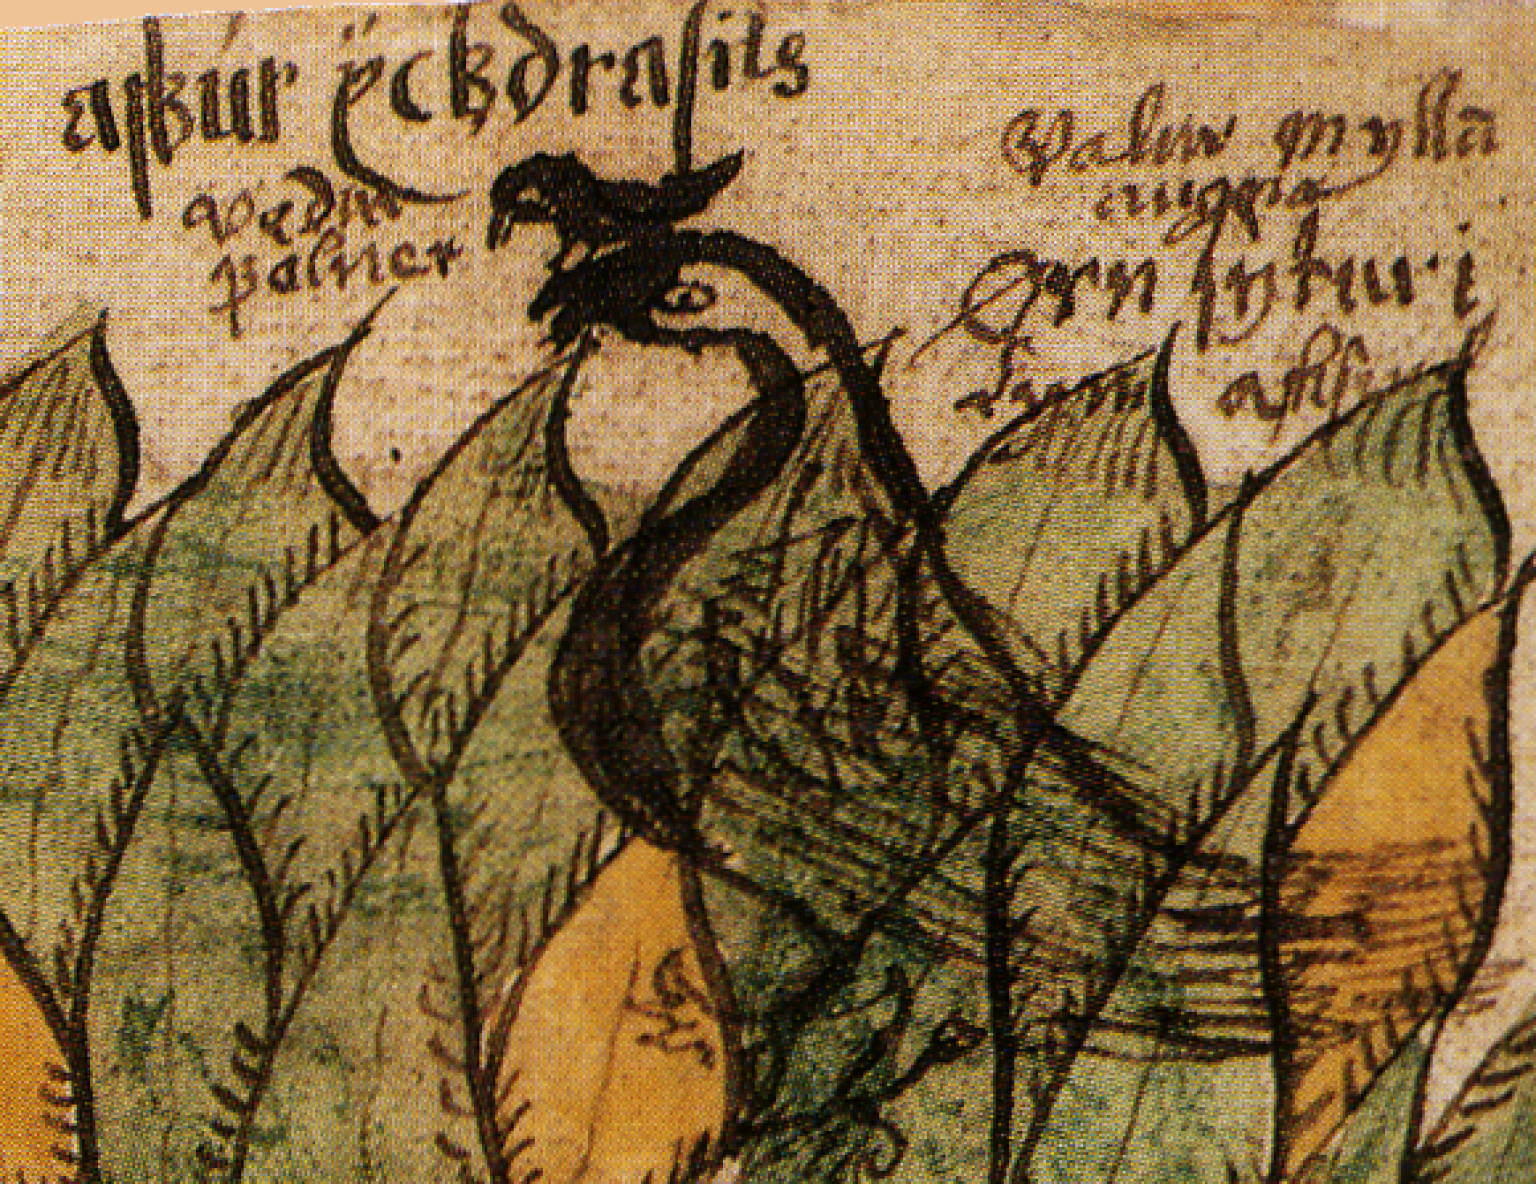 askúr ÿckdrasils
vedur
palner
Valur myllā
augna
Orn sytur i
asks